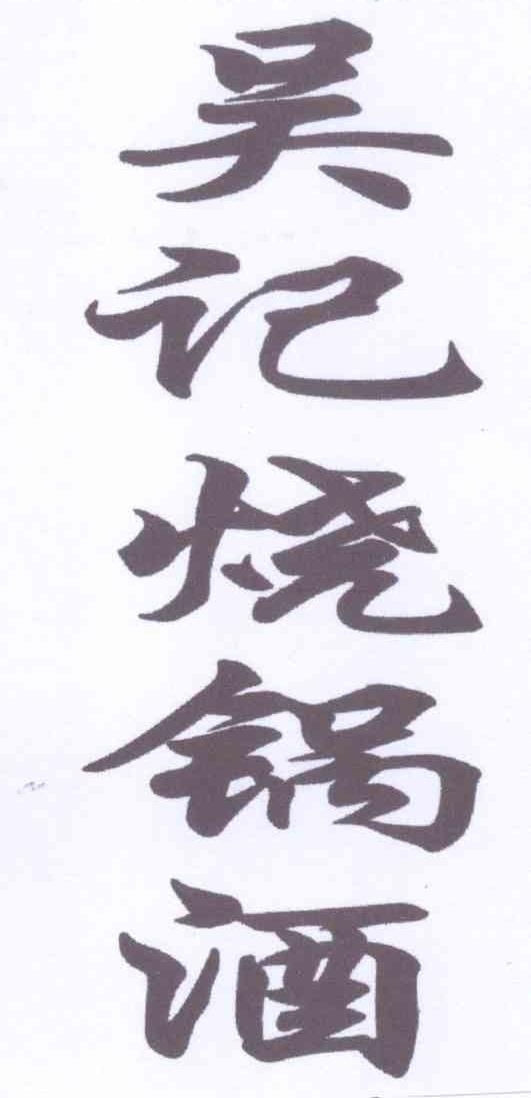 吴记烧锅酒